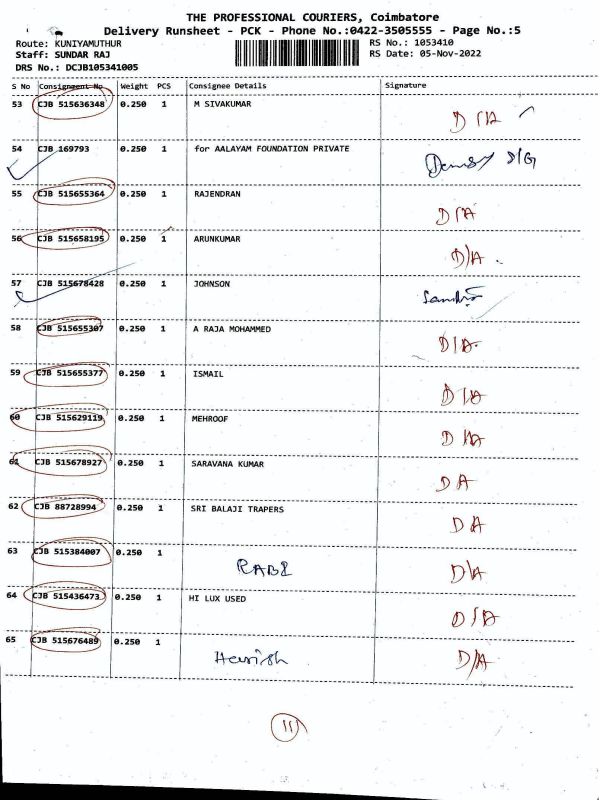 THE PROFESSIONAL COURIERS, Coimbatore
Delivery Runsheet - PCK - Phone No.:0422-3505555 - Page No.:5
Route: KUNIYAMUTHUR RS No.: 1053410
Staff: SUNDAR RAJ RS Date: 05-Nov-2022
DRS No.: DCJB105341005
S No Consignment No Weight PCS Consignee Details Signature
53 CJB 515636348 0.250 1 M SIVAKUMAR D/A
54 CJB 169793 0.250 1 for AALAYAM FOUNDATION PRIVATE
55 CJB 515655364 0.250 1 RAJENDRAN D/A
56 CJB 515658195 0.250 1 ARUNKUMAR D/A.
57 CJB 515678428 0.250 1 JOHNSON
58 CJB 515655307 0.250 1 A RAJA MOHAMMED D/A
59 CJB 515655377 0.250 1 ISMAIL D/A
60 CJB 515629119 0.250 1 MEHROOF D/A
61 CJB 515678927 0.250 1 SARAVANA KUMAR DA
62 CJB 88728994 0.250 1 SRI BALAJI TRAPERS DA
63 CJB 515384007 0.250 1 RABI D/A
64 CJB 515436473 0.250 1 HI LUX USED D/A
65 CJB 515676489 0.250 1 Harish D/A
11